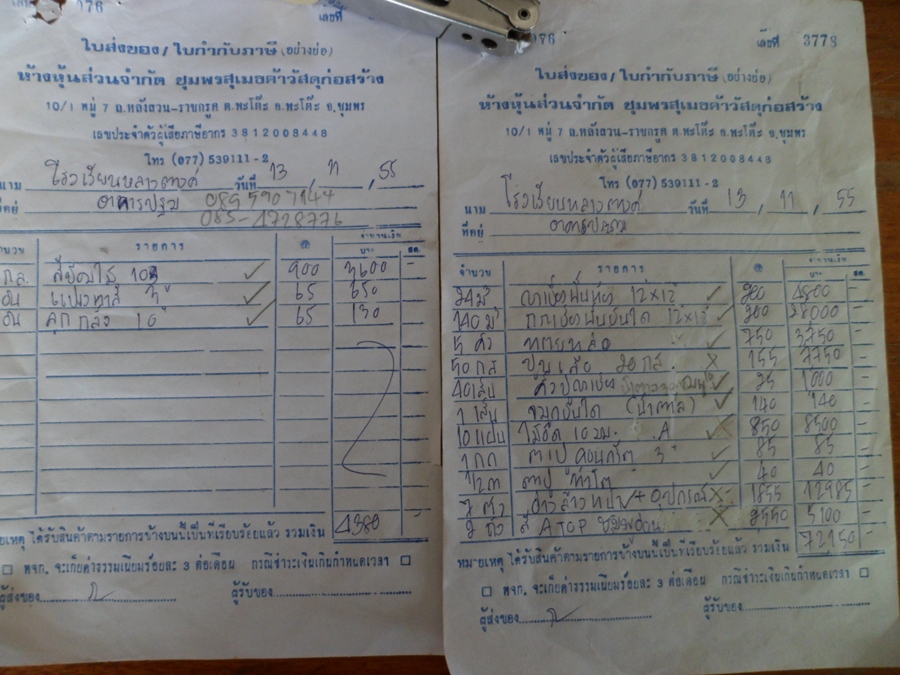 076
เลขที่
ใบส่งของ/ใบกำกับภาษี (อย่างย่อ)
ห้างหุ้นส่วนจำกัด ชุมพรสุเมอค้าวัสดุก่อสร้าง
10/1 หมู่ 7 ถ.หลังสวน-ราชกรูด ต.พะโต๊ะ อ.พะโต๊ะ จ.ชุมพร
เลขประจำตัวผู้เสียภาษีอากร 3812008448
โทร (077) 539111-2
นาม โรงเรียน วันที่ 13, 11, 55
ที่อยู่ อาคารปฐม 085 5907144
085-4728776
จำนวน รายการ @ จำนวนเงิน
บาท สต.
กล. 900 3600
อัน แปรงทาสี 3" 65 650
อัน ลูกกลิ้ง 10 65 130
หมายเหตุ ได้รับสินค้าตามรายการข้างบนนี้เป็นที่เรียบร้อยแล้ว รวมเงิน 4380
หจก. จะเก็บค่าธรรมเนียมร้อยละ 3 ต่อเดือน กรณีชำระเงินเกินกำหนดเวลา
ผู้ส่งของ ผู้รับของ
076
เลขที่ 3778
ใบส่งของ/ใบกำกับภาษี (อย่างย่อ)
ห้างหุ้นส่วนจำกัด ชุมพรสุเมอค้าวัสดุก่อสร้าง
10/1 หมู่ 7 ถ.หลังสวน-ราชกรูด ต.พะโต๊ะ อ.พะโต๊ะ จ.ชุมพร
เลขประจำตัวผู้เสียภาษีอากร 3812008448
โทร (077) 539111-2
นาม โรงเรียน วันที่ 13, 11, 55
ที่อยู่
จำนวน รายการ @ จำนวนเงิน
บาท สต.
24 ม² 12x12 200 4800 -
140 ม² 12x12 200 28000 -
5 คิว ทราย 750 3750 -
50 กส ปูนเสือ 20 กส. 155 7750 -
40 เส้น คิ้ว 25 1000 -
1 เส้น จมูกบันได (น้ำตาล) 140 140 -
10 แผ่น ไม้อัด 10 มม. A 850 8500 -
1 ตะปูคอนกรีต 3" 85 85 -
ตาปู 40 40 -
7 + อุปกรณ์ 1855 12985 -
2 ถัง สี ATOP 2550 5100 -
หมายเหตุ ได้รับสินค้าตามรายการข้างบนนี้เป็นที่เรียบร้อยแล้ว รวมเงิน 72150 -
หจก. จะเก็บค่าธรรมเนียมร้อยละ 3 ต่อเดือน กรณีชำระเงินเกินกำหนดเวลา
ผู้ส่งของ ผู้รับของ